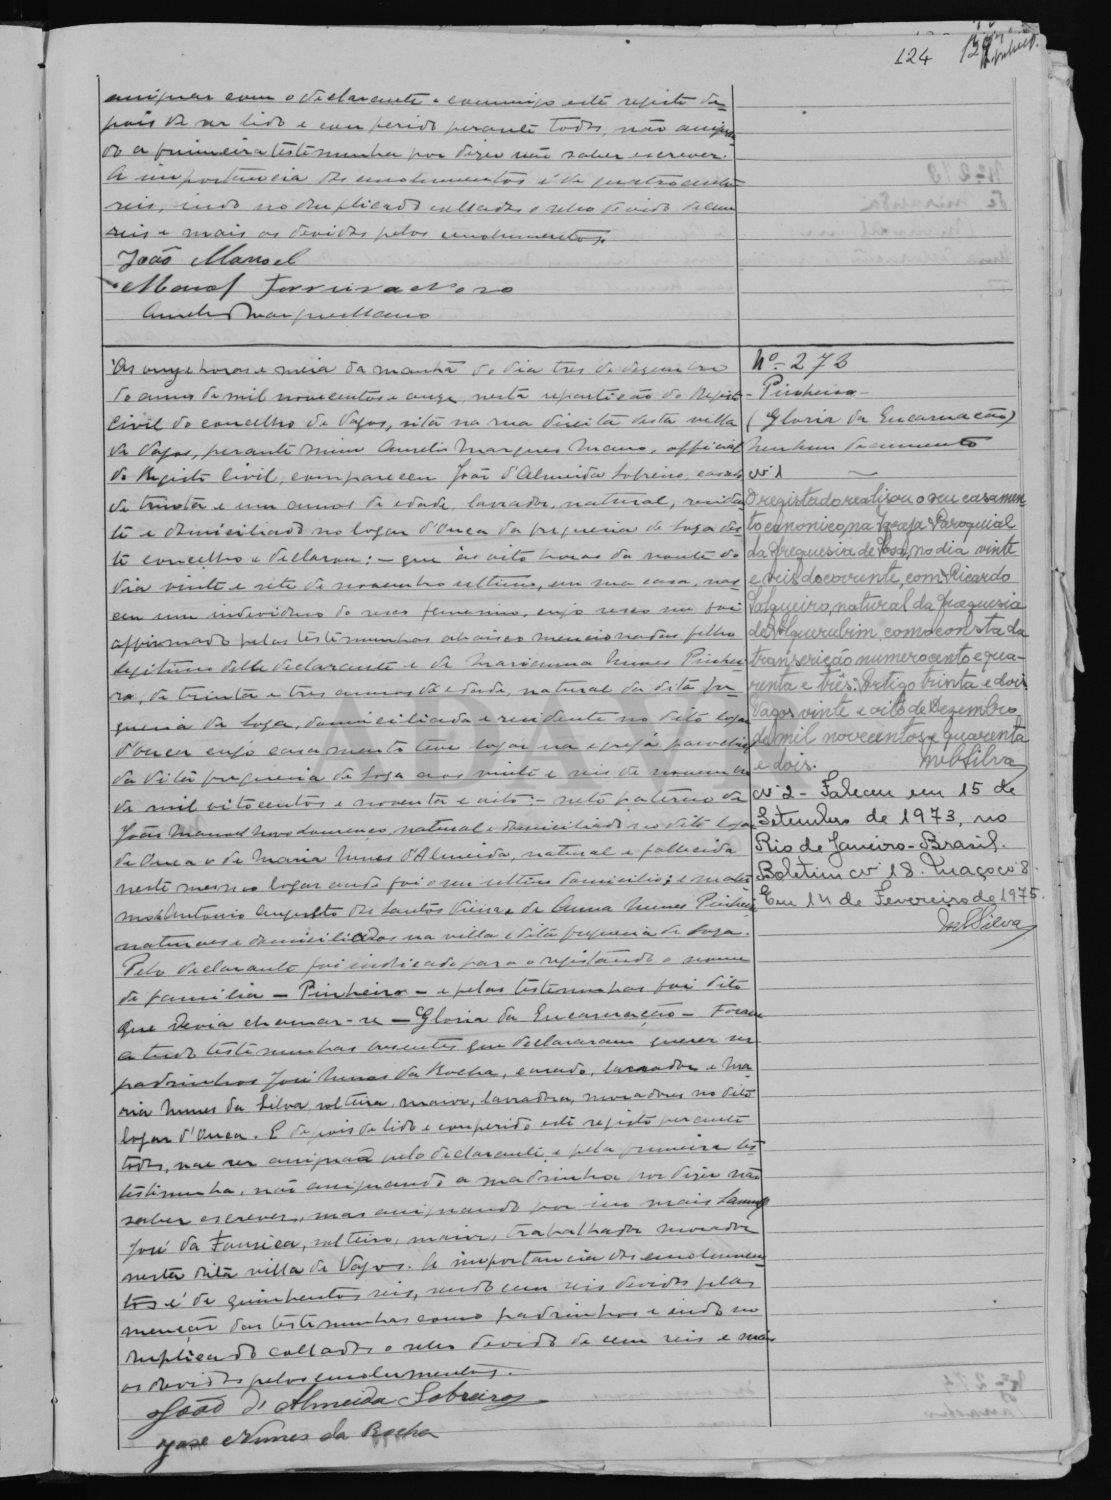 124
assignar com o declarante e commigo este registo de-
pois de ser lido e conferido perante todos, não assignan-
do a primeira testemunha por dizer não saber escrever.
A importancia dos emolumentos é de quatrocentos
reis, indo no duplicado collados o sello devido de cem
reis e mais os devidos pelos emolumentos.
João Manoel
Manoel Ferreira Novo
Aurelio Marques Mano
Ás onze horas e meia da manhã do dia tres de dezembro
do anno de mil novecentos e onze, nesta repartição do Registo
Civil do concelho de Vagos, sita na rua direita desta villa
de Vagos, perante mim Aurelio Marques Mano, official
do Registo Civil, compareceu João d'Almeida Sobreiro, casado
de trinta e um annos de edade, lavrador, natural, residen-
te e domiciliado no logar d'Ouca da freguesia de Soza des-
te concelho e declarou: - que ás oito horas da noute do
dia vinte e sete de novembro ultimo, em sua casa, nas-
ceu um individuo do sexo femenino, cujo sexo me foi
affirmado pelas testemunhas abaixo mencionadas filho
legitimo delle declarante e de Marianna Nunes Pinhei-
ro, de trinta e tres annos de edade, natural da dita fre-
guesia de Soza, domiciliada e residente no dito logar
d'Ouca cujo casamento teve logar na egreja parochial
da dita freguesia de Soza aos vinte e seis de novembro
de mil oitocentos e noventa e oito: - neto paterno de
João Manoel Novo Lourenço, natural e domiciliado no dito logar
de Ouca e de Maria Nunes d'Almeida, natural e fallecida
neste mesmo logar onde foi o seu ultimo domicilio; e mater-
no de Antonio Augusto dos Santos Vieira e de Anna Nunes Pinheiro
naturaes e domiciliados na villa e dita freguesia de Soza.
Pelo declarante foi indicado para o registando o nome
de familia - Pinheiro - e pelas testemunhas foi dito
que devia chamar-se - Gloria da Encarnação - Foram
a tudo testemunhas presentes que declararam querer ser
padrinhos José Nunes da Rocha, casado, lavrador e Ma-
ria Nunes da Silva solteira, maior, lavradora, moradores no dito
logar d'Ouca. E depois de lido e conferido este registo perante
todos, vae ser assignado pelo declarante e pela primeira tes-
testimunha, não assignando a madrinha por dizer não
saber escrever, mas assignando por seu mais
José da Fonseca, solteiro, maior, trabalhador morador
nesta dita villa de Vagos. A importancia dos emolumen-
tos é de quinhentos reis, sendo cem reis devidos pela
menção das testemunhas como padrinhos e indo no
duplicado collados o sello devido de cem reis e mais
os devidos pelos emolumentos.
João d'Almeida Sobreiro
José Nunes da Rocha
Nº - 273
- Pinheiro -
(Gloria da Encarnação)
Nenhum documento
Nº 1
O registado realisou o seu casamen-
to canonico, na Igreja Paroquial
da freguesia de Sosa, no dia vinte
e seis do corrente, com Ricardo
Salgueiro, natural da freguesia
de Alquerubim, como consta da
transcrição numero cento e qua-
renta e três: Artigo trinta e dois
Vagos vinte e oito de Dezembro
de mil novecentos e quarenta
e dois.
Nº 2 - Faleceu em 15 de
Setembro de 1973, no
Rio de Janeiro - Brasil.
Boletim nº 18. Maço nº 8.
Em 14 de Fevereiro de 1975.
ADAVR